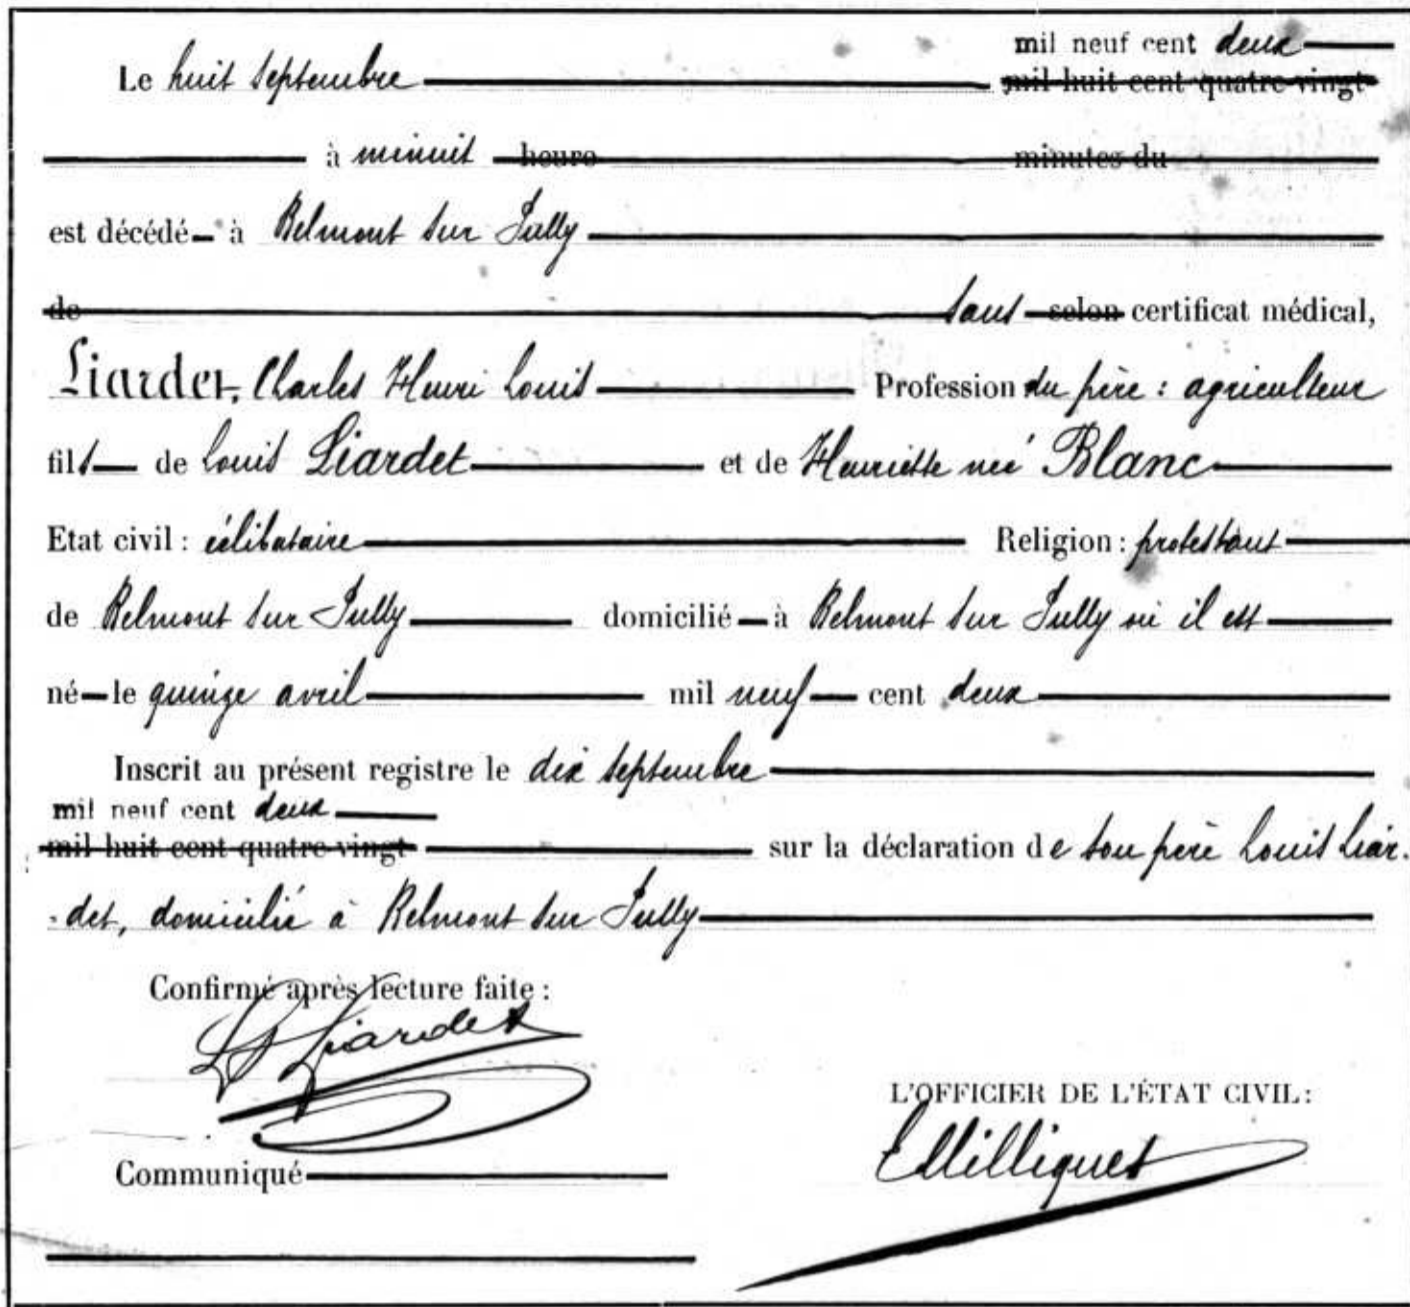 mil neuf cent deux
Le huit Septembre mil huit cent quatre-vingt
à minuit heure minutes du
est décédé à Belmont sur Lully
de sans selon certificat médical,
Liardet, Charles Henri Louis Profession du père : agriculteur
fils de Louis Liardet et de Henriette née Blanc
Etat civil : célibataire Religion : protestant
de Belmont sur Lully domicilié à Belmont sur Lully où il est
né le quinze avril mil neuf cent deux
Inscrit au présent registre le dix septembre
mil neuf cent deux
mil huit cent quatre-vingt sur la déclaration de son père Louis Liar-
-det, domicilié à Belmont sur Lully
Confirmé après lecture faite :
Ls Liardet
L'OFFICIER DE L'ÉTAT CIVIL :
E Milliquet
Communiqué